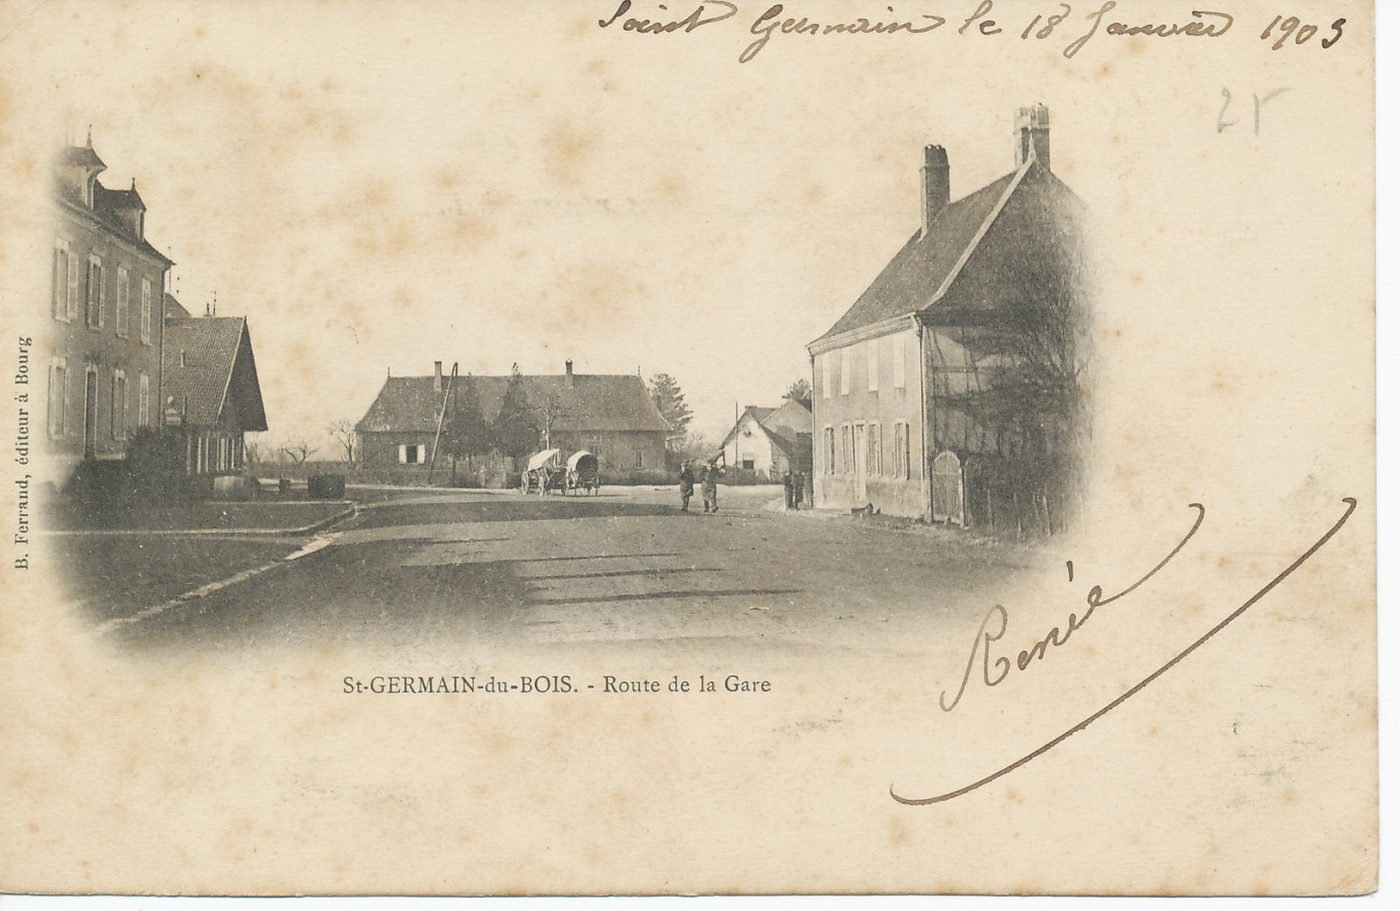 Saint Germain le 18 Janvier 1903
B. Ferrand, éditeur à Bourg
St-GERMAIN-du-BOIS. - Route de la Gare
Renée